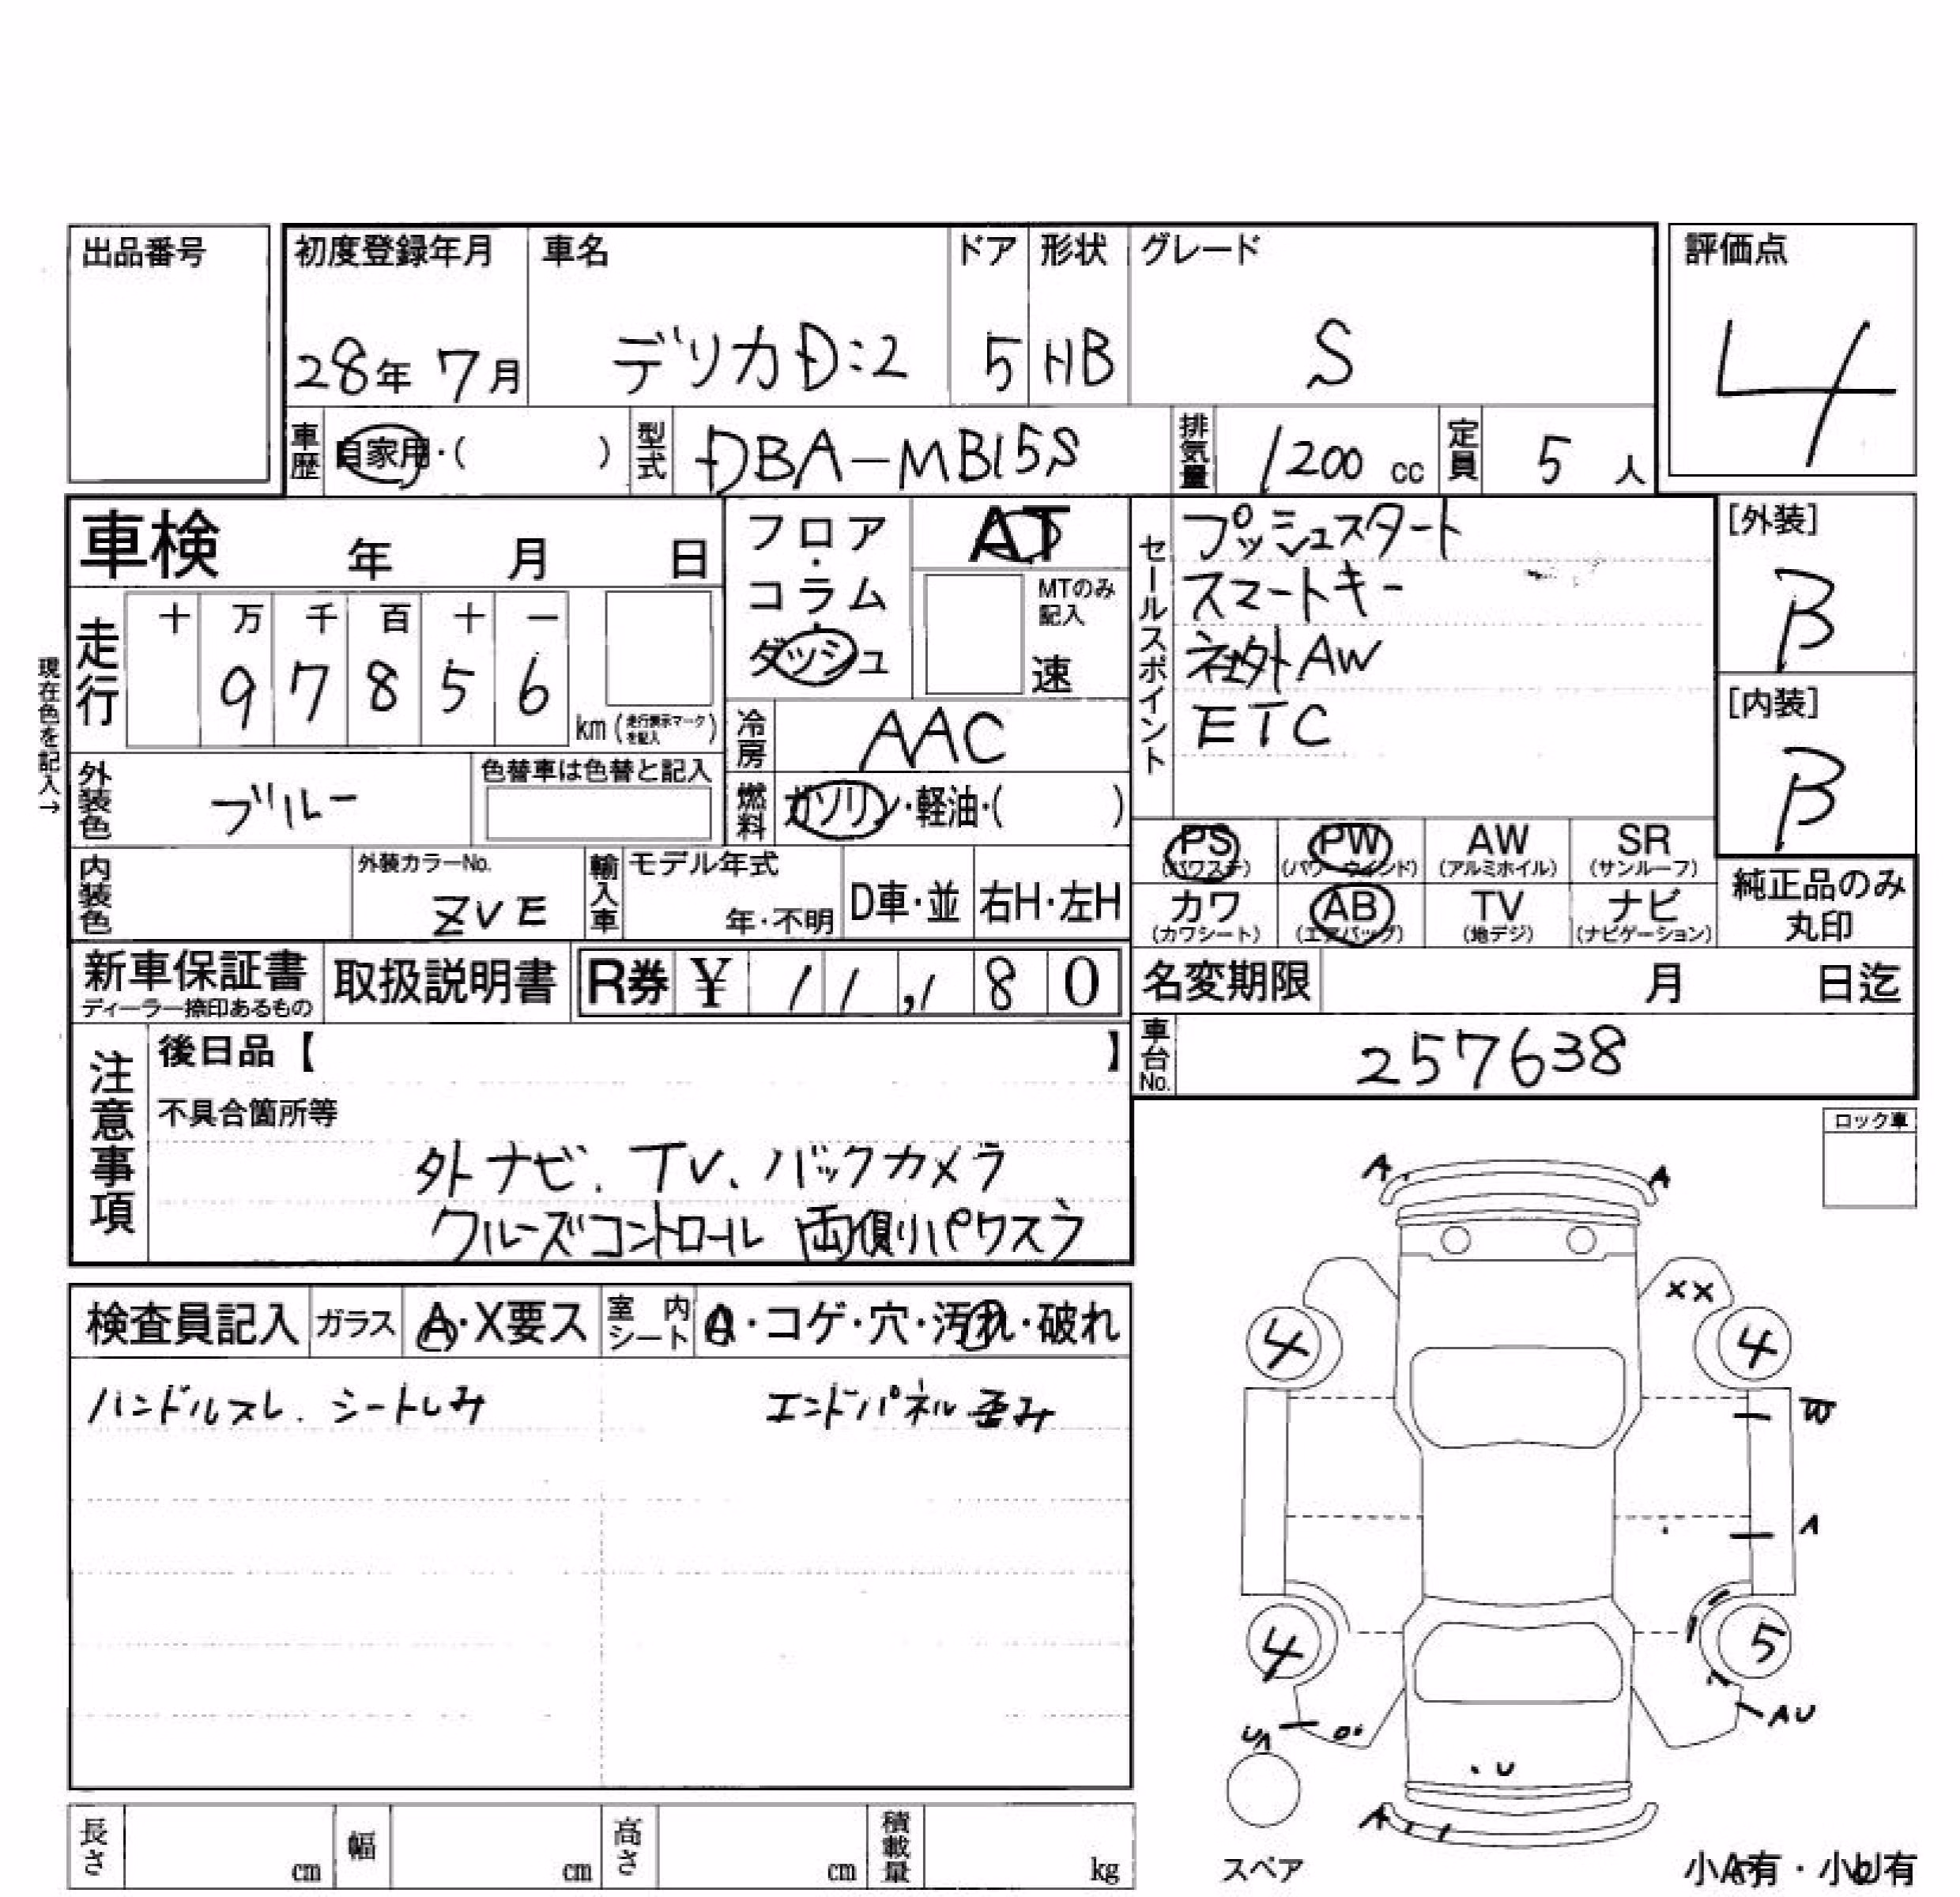 出品番号
初度登録年月 車名 ドア 形状 グレード 評価点
28年 7月 デリカD:2 5 HB S 4
車歴 自家用・( ) 型式 DBA-MB15S 排気量 1200 cc 定員 5 人
車検 年 月 日
フロア・コラム・ダッシュ
AT
MTのみ記入
速
セールスポイント
プッシュスタート
スマートキー
社外AW
ETC
[外装]
B
[内装]
B
現在色を記入→
走行 十 万 千 百 十 一
9 7 8 5 6
km (走行表示マークを記入)
冷房 AAC
外装色 ブルー 色替車は色替と記入
燃料 ガソリン・軽油・( )
内装色 外装カラーNo. ZVE 輸入車 モデル年式 年・不明 D車・並 右H・左H
PS (パワステ) PW (パワーウインド) AW (アルミホイル) SR (サンルーフ)
カワ (カワシート) AB (エアバッグ) TV (地デジ) ナビ (ナビゲーション)
純正品のみ
丸印
新車保証書 ディーラー捺印あるもの 取扱説明書 R券 ¥ 11,180
名変期限 月 日迄
車台No. 257638
注意事項
後日品【 】
不具合箇所等
外ナビ、TV、バックカメラ
クルーズコントロール 両側パワスラ
ロック車
検査員記入 ガラス A・X要ス 室内シート A・コゲ・穴・汚れ・破れ
ハンドルスレ、シートしみ エンドパネル歪み
A A
XX
4 4
W
A
4 5
UA AU
U
A
スペア
小A有・小U有
長さ cm 幅 cm 高さ cm 積載量 kg